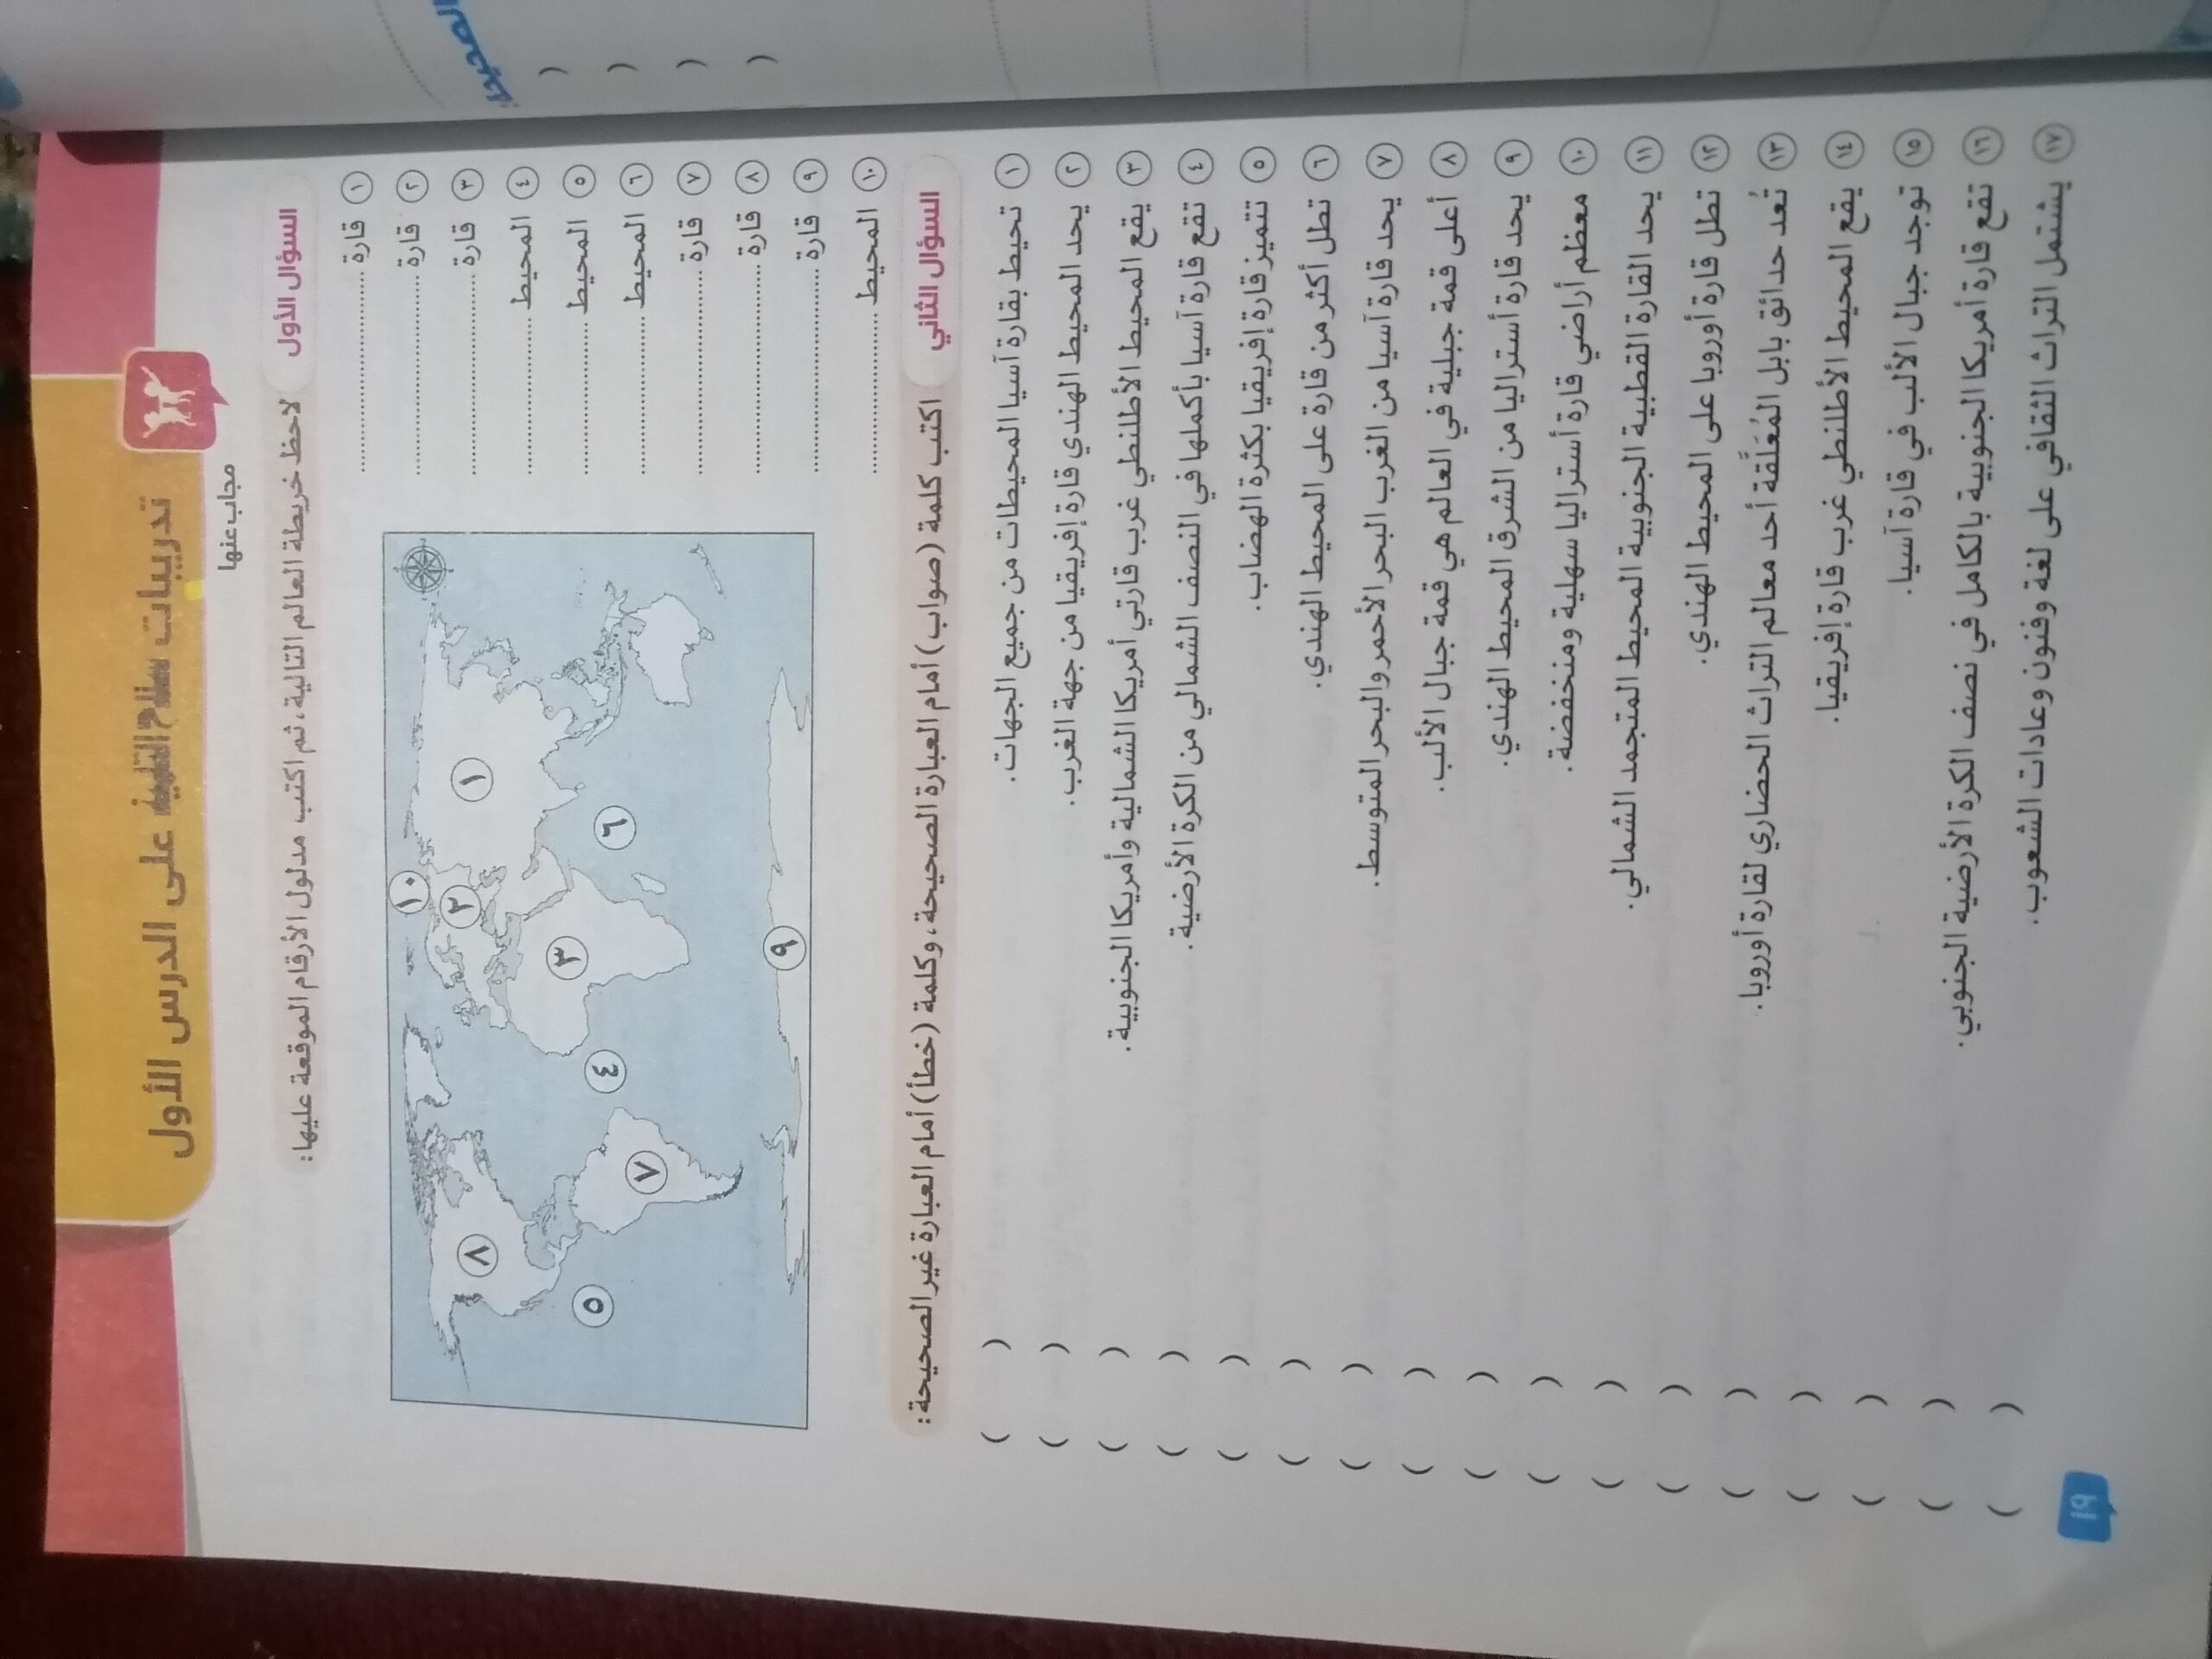 تدريبات سلاح التلميذ على الدرس الأول
مجاب عنها
السؤال الأول لاحظ خريطة العالم التالية، ثم اكتب مدلول الأرقام الموقعة عليها:
١ قارة ....................
٢ قارة ....................
٣ قارة ....................
٤ المحيط ....................
٥ المحيط ....................
٦ المحيط ....................
٧ قارة ....................
٨ قارة ....................
٩ قارة ....................
١٠ المحيط ....................
١٠
١
٢
٣
٦
٤
٨
٧
٥
٩
السؤال الثاني اكتب كلمة (صواب) أمام العبارة الصحيحة، وكلمة (خطأ) أمام العبارة غير الصحيحة:
١ تحيط بقارة آسيا المحيطات من جميع الجهات. ( )
٢ يحد المحيط الهندي قارة إفريقيا من جهة الغرب. ( )
٣ يقع المحيط الأطلنطي غرب قارتي أمريكا الشمالية وأمريكا الجنوبية. ( )
٤ تقع قارة آسيا بأكملها في النصف الشمالي من الكرة الأرضية. ( )
٥ تتميز قارة إفريقيا بكثرة الهضاب. ( )
٦ تطل أكثر من قارة على المحيط الهندي. ( )
٧ يحد قارة آسيا من الغرب البحر الأحمر والبحر المتوسط. ( )
٨ أعلى قمة جبلية في العالم هي قمة جبال الألب. ( )
٩ يحد قارة أستراليا من الشرق المحيط الهندي. ( )
١٠ معظم أراضي قارة أستراليا سهلية ومنخفضة. ( )
١١ يحد القارة القطبية الجنوبية المحيط المتجمد الشمالي. ( )
١٢ تطل قارة أوروبا على المحيط الهندي. ( )
١٣ تُعد حدائق بابل المُعَلَّقة أحد معالم التراث الحضاري لقارة أوروبا. ( )
١٤ يقع المحيط الأطلنطي غرب قارة إفريقيا. ( )
١٥ توجد جبال الألب في قارة آسيا. ( )
١٦ تقع قارة أمريكا الجنوبية بالكامل في نصف الكرة الأرضية الجنوبي. ( )
١٧ يشتمل التراث الثقافي على لغة وفنون وعادات الشعوب. ( )
١٩